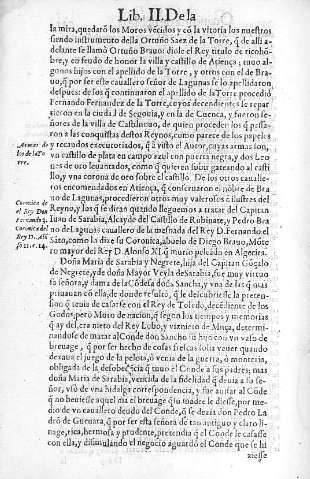 Lib. II. De la
la mira, quedarõ los Moros vécidos y cõ la vitoria los nuestros
siendo instrumẽto desta Ortuño Saez de la Torre, q̃ de alli a-
delante se llamò Ortuño Brauo: diole el Rey titulo de ricohõ-
bre, y en feudo de honor la villa y castillo de Atiença; tuuo al-
gunos hijos con el apellido de la Torre, y otros con el de Bra-
uo, q̃ por ser este cauallero señor de Lagunas se lo apellidaron
despues: de los q̃ continuaron el apellido de la Torre procedió
Fernando Fernandez de la Torre, cuyos decendientes se repar
tieron en la ciudad de Segouia, y en la de Cuenca, y fueron se-
ñores de la villa de Castalunio, de quien proceden los q̃ passa-
ron a las conquistas destos Reynos, como parece de los papeles
y recaudos executoriados, q̃ à visto el Autor, cuyas armas son,
vn castillo de plata en campo azul con puerta negra, y dos Leo
nes de oro leuantados, como q̃ quieren subir gateando al casti
llo, y vna corona de oro sobre el castillo. De los otros caualle-
ros encomendados en Atiença, q̃ conseruaron el nõbre de Bra
uo de Lagunas, procedieron otros muy valerosos è ilustres del
Reyno, y los q̃ se dirán quando lleguemos a tratar del Capitan
Iuan de Sarabia, Alcayde del Castillo de Robinate, y Pedro Bra
uo de Lagunas cauallero de la mesnada del Rey D. Fernando el
Sãto, como la dize su Coronica, abuelo de Diego Brauo, Mõte
ro mayor del Rey D. Alonso XI. q̃ murio peleando en Algezira.
Doña Maria de Sarabia y Negrete, hija del Capitan Gõçalo
de Negrete, y de doña Mayor Veyla de Sarabia, fue muy virtuo
sa señora, y dama de la Cõdesa doña Sancha, y vna de las q̃ mas
priuauan cõ ella, de donde resultò, q̃ le descubriesse la preten-
q̃ tenia de casarse con el Rey de Toledo, decendiente de los
Godos, però Moro de nacion, q̃ segun los tiempos y memorias
q̃ ay del, era nieto del Rey Lobo, y viznieto de Muça, determi-
nandose de matar al Conde don Sancho su hijo con vn vaso de
breuage, q̃ por ser hecho de cosas frescas solia vener quando
dexaua el juego de la pelota, ò venia de la guerra, ò monteria,
obligada de la desobediẽcia q̃ tuuo el Conde a sus padres; mas
doña Maria de Sarabia, vencida de la fidelidad q̃ deuia a su se-
ñor, vsò de vna hidalga correspondencia, y fue auisar al Cõde
q̃ no beuiesse aquel dia el breuage q̃ su madre le diesse, por me-
dio de vn cauallero deudo del Conde, q̃ se dezia don Pedro La
drõ de Gueuara, q̃ por ser esta señora de tan antiguo y claro li-
nage, rica, hermosa y prudente, pretendia q̃ el Conde le casasse
con ella, y disimulando el negocio aguardó el Conde que se hi
ziesse
Armas de
los de la Torre.
Coronica de
el Rey Don
Fernando y
Coronica del
Rey D. Alõ
so 11. c. 14.